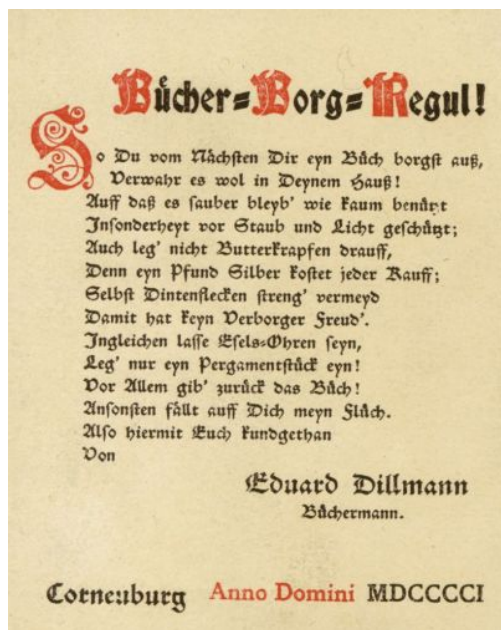 Bücher=Borg=Regul!
So Du vom Nächsten Dir eyn Bůch borgst auß,
Verwahr es wol in Deynem Hauß!
Auff daß es sauber bleyb' wie kaum benützt
Insonderheyt vor Staub und Licht geschützt;
Auch leg' nicht Butterkrapfen drauff,
Denn eyn Pfund Silber kostet jeder Kauff;
Selbst Dintenflecken streng' vermeyd
Damit hat keyn Verborger Freud'.
Ingleichen lasse Esels=Ohren seyn,
Leg' nur eyn Pergamentstück eyn!
Vor Allem gib' zurück das Bůch!
Ansonsten fällt auff Dich meyn Flůch.
Also hiermit Euch kundgethan
Von
Eduard Dillmann
Bůchermann.
Corneuburg Anno Domini MDCCCCI